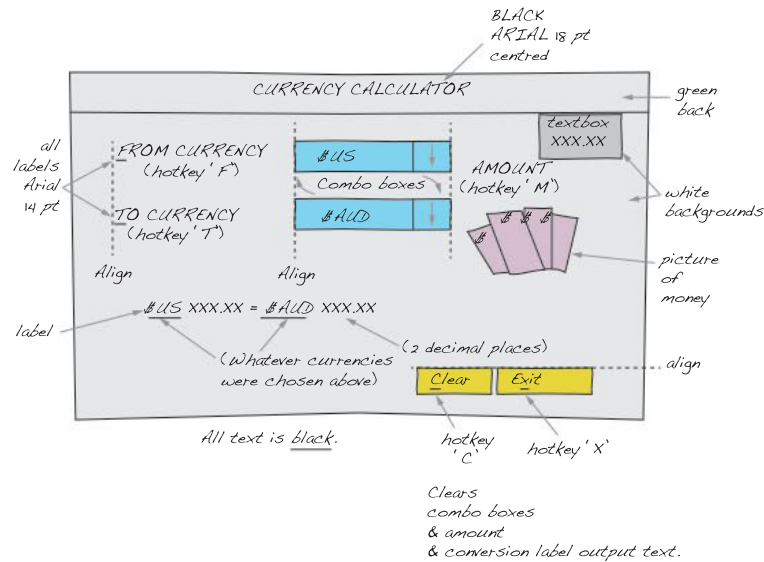 BLACK
ARIAL 18 pt
centred
CURRENCY CALCULATOR
green
back
all
labels
Arial
14 pt
FROM CURRENCY
(hotkey 'F')
$US
Combo boxes
TO CURRENCY
(hotkey 'T')
$AUD
textbox
XXX.XX
AMOUNT
(hotkey 'M')
white
backgrounds
$ $ $ $
picture
of
money
Align
Align
label
$US XXX.XX = $AUD XXX.XX
(Whatever currencies
were chosen above)
(2 decimal places)
align
Clear
Exit
All text is black.
hotkey
'C'
hotkey 'X'
Clears
combo boxes
& amount
& conversion label output text.